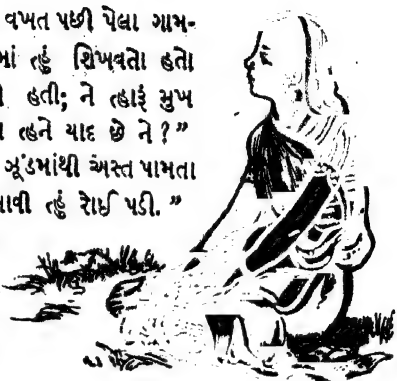 વખત પછી પેલા ગામ-
માં ત્હું શિખવતો હતો
હતી; ને ત્હારૂં મુખ
ત્હને યાદ છે ને ?”
ઝૂંડમાંથી અસ્ત પામતા
આવી ત્હું રોઈ પડી. ”